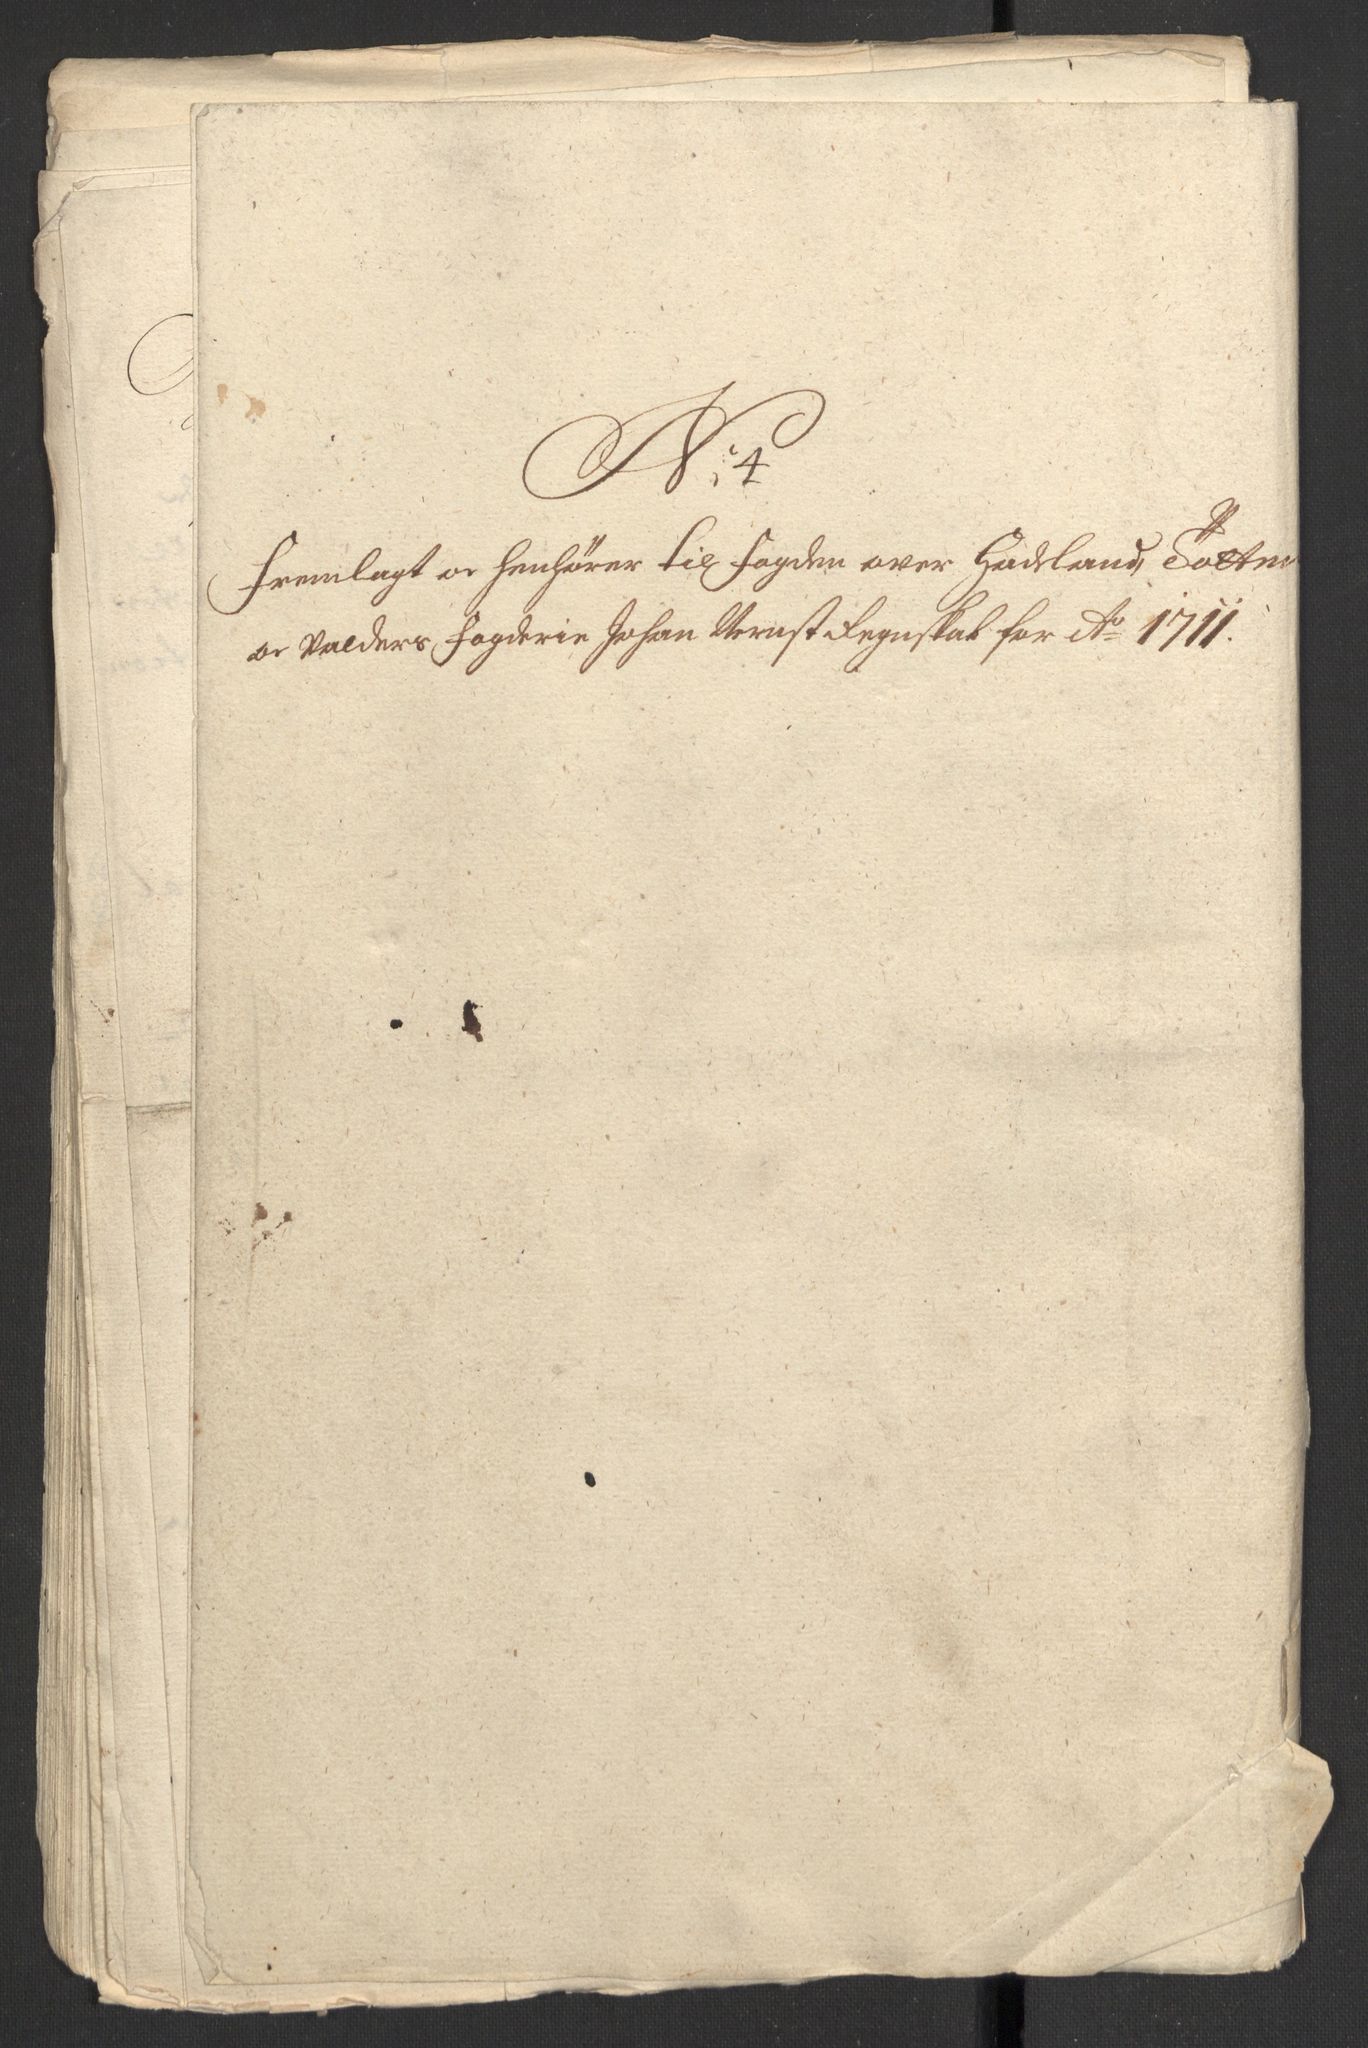 No: 4
Fremlagt oc henhører til Fogden over Hadeland, Totten
oc Valders Fogderie Johan Vernst Regnskab for Ao 1711.